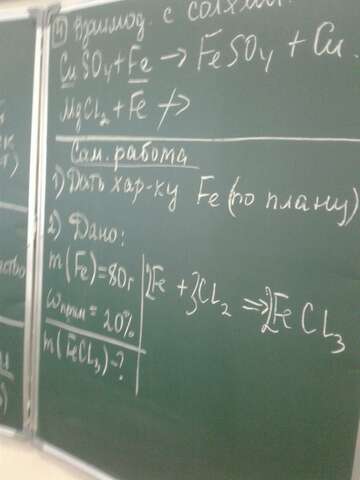 ④ Взаимод. с солями.
CuSO4 + Fe → FeSO4 + Cu.
MgCl2 + Fe ↛
Сам. работа
1) Дать хар-ку Fe (по плану)
2) Дано:
m(Fe) = 80г
ωприм = 20%
m(FeCl3) - ?
2Fe + 3Cl2 ⇒ 2FeCl3